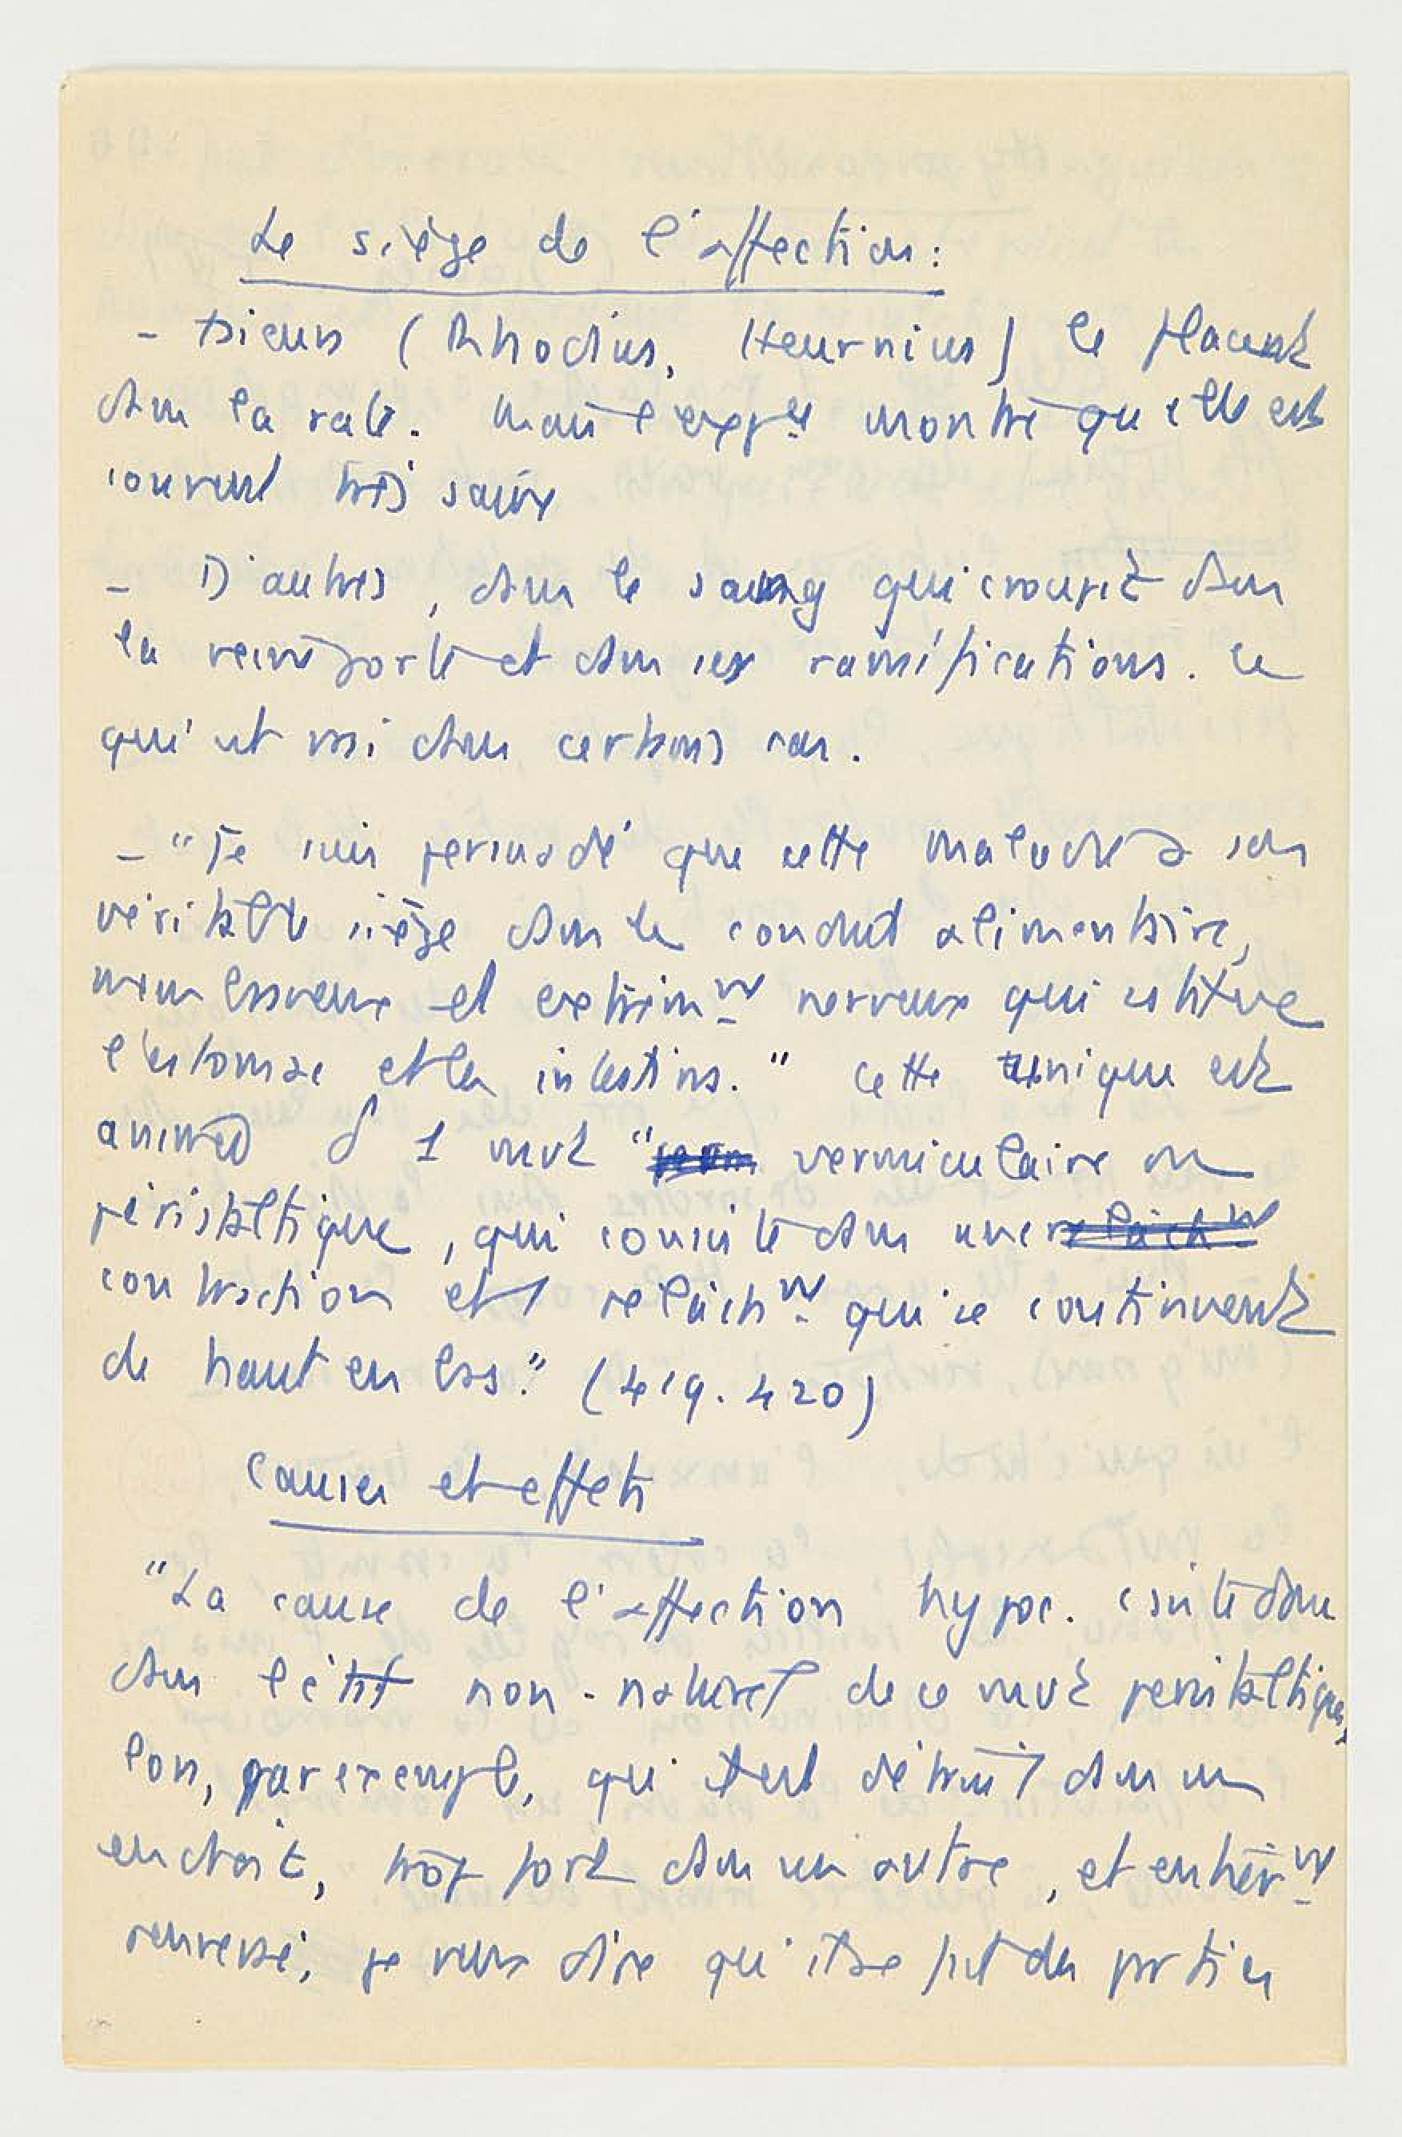 Le siège de l'affection:
- (Rhodius, Heurnius) le placent
dans la rate. Mais l'expce montre qu'elle est
souvent très saine
- D'autres, dans le sang qui croupit dans
la veine porte et dans ses ramifications. Ce
qui est vrai dans certains cas.
- "Je suis persuadé que cette maladie a son
véritable siège dans le conduit alimentaire,
membraneux et extrêmt nerveux qui constitue
l'estomac et les intestins." Cette tunique est
animée d'1 mvt " vermiculaire ou
péristaltique, qui consiste dans une relâcht
contraction et 1 relâcht qui se continuent
de haut en bas." (419. 420)
Causes et effets
"La cause de l'affection hypoc. csiste donc
dans l'état non-naturel de ce mvt péristaltique,
lors, par exemple, qu'il est détruit dans un
endroit, trop fort dans un autre, et entièrt
renversé, je veux dire qu'il se fait des parties